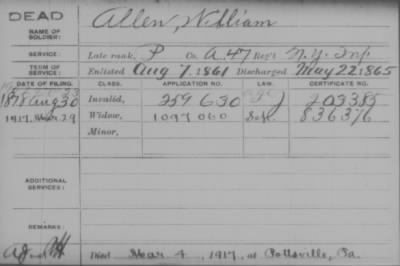 DEAD
NAME OF SOLDIER: Allen, William
SERVICE: Late rank, P Co. A. 47 Reg't N.Y. Inf
TERM OF SERVICE: Enlisted Aug 7, 1861 Discharged May 22, 1865
DATE OF FILING. CLASS. APPLICATION NO. LAW. CERTIFICATE NO.
1878 Aug 30 Invalid, 259630 203385
1917. Mar. 29 Widow, 1097060 836376
Minor,
ADDITIONAL SERVICES:
REMARKS:
Died Mar 4, 1917, at Pottsville, Pa.